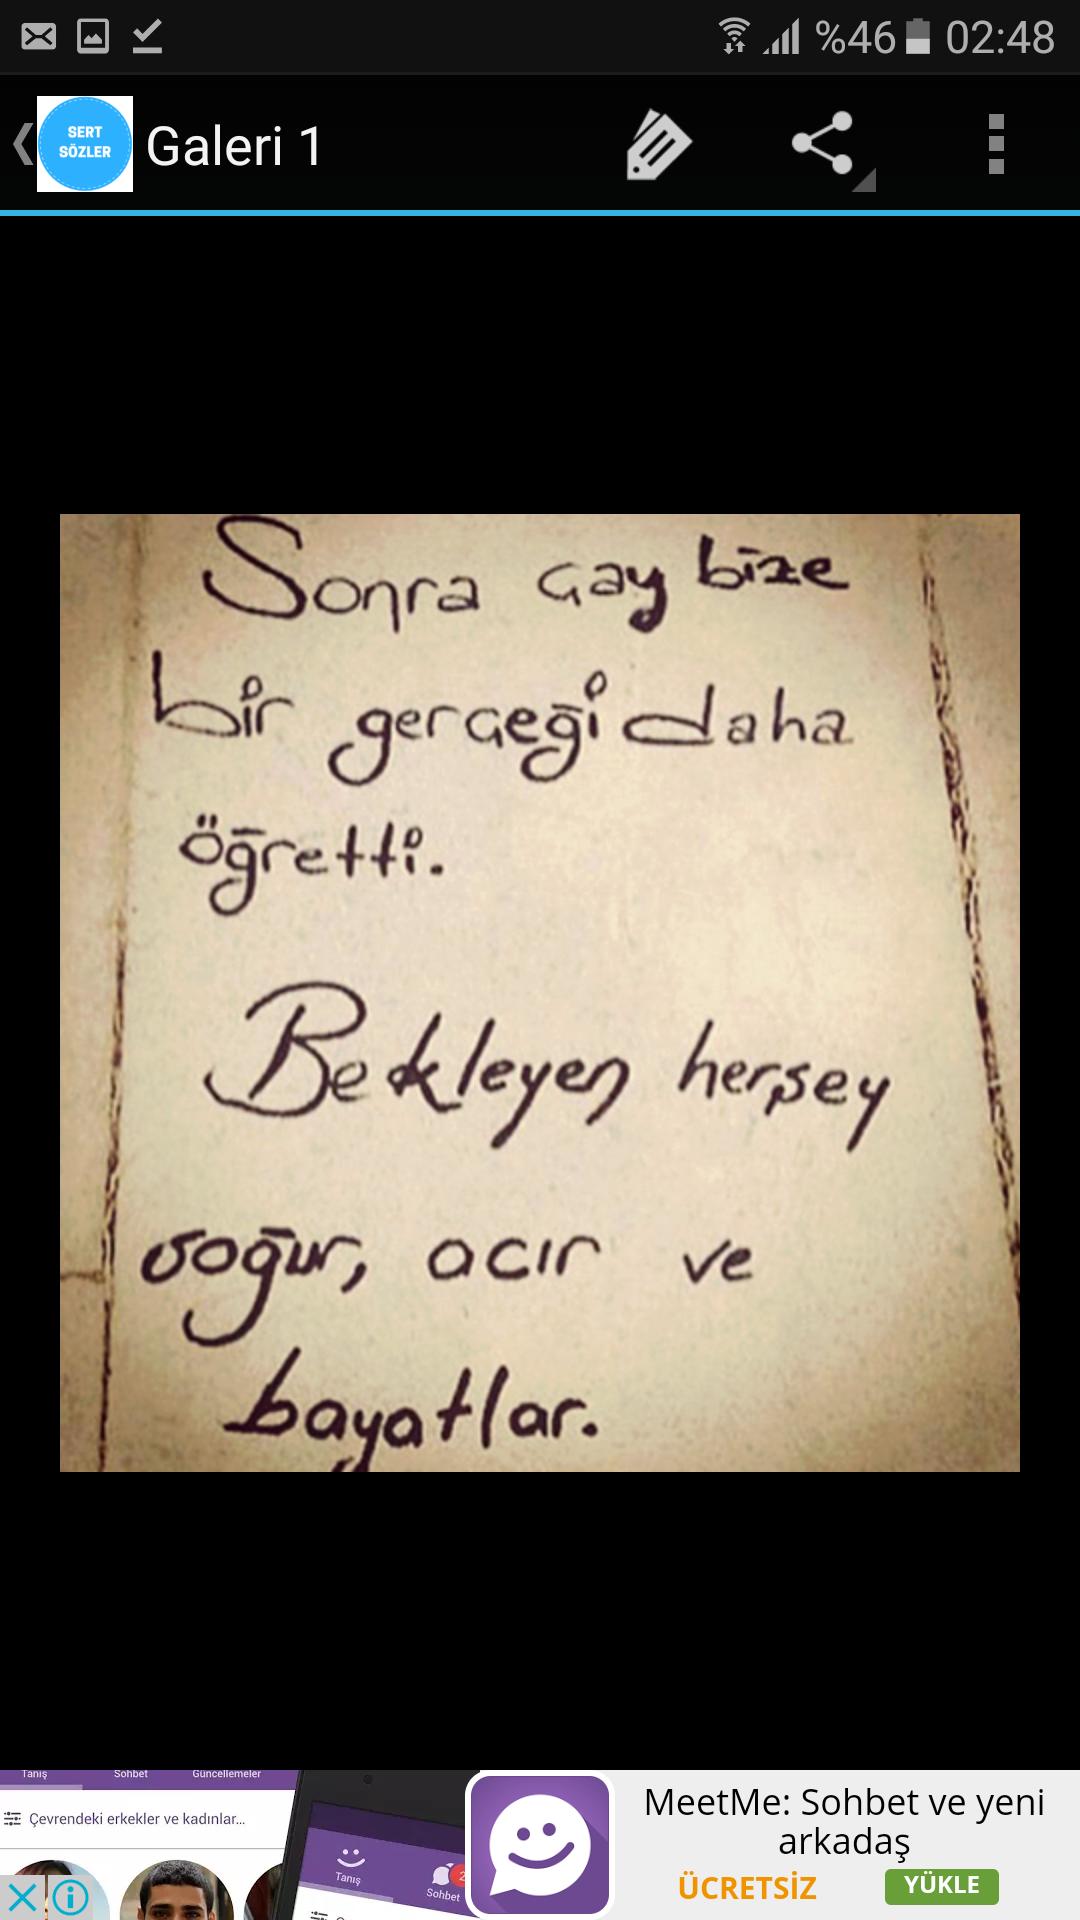 %46 02:48
SERT
SÖZLER
Galeri 1
Sonra çay bize
bir gerçeği daha
öğretti.
Bekleyen herşey
soğur, acır ve
bayatlar.
Tanış Sohbet Güncellemeler
Çevrendeki erkekler ve kadınlar...
Tanış
Sohbet
2
MeetMe: Sohbet ve yeni
arkadaş
ÜCRETSİZ YÜKLE